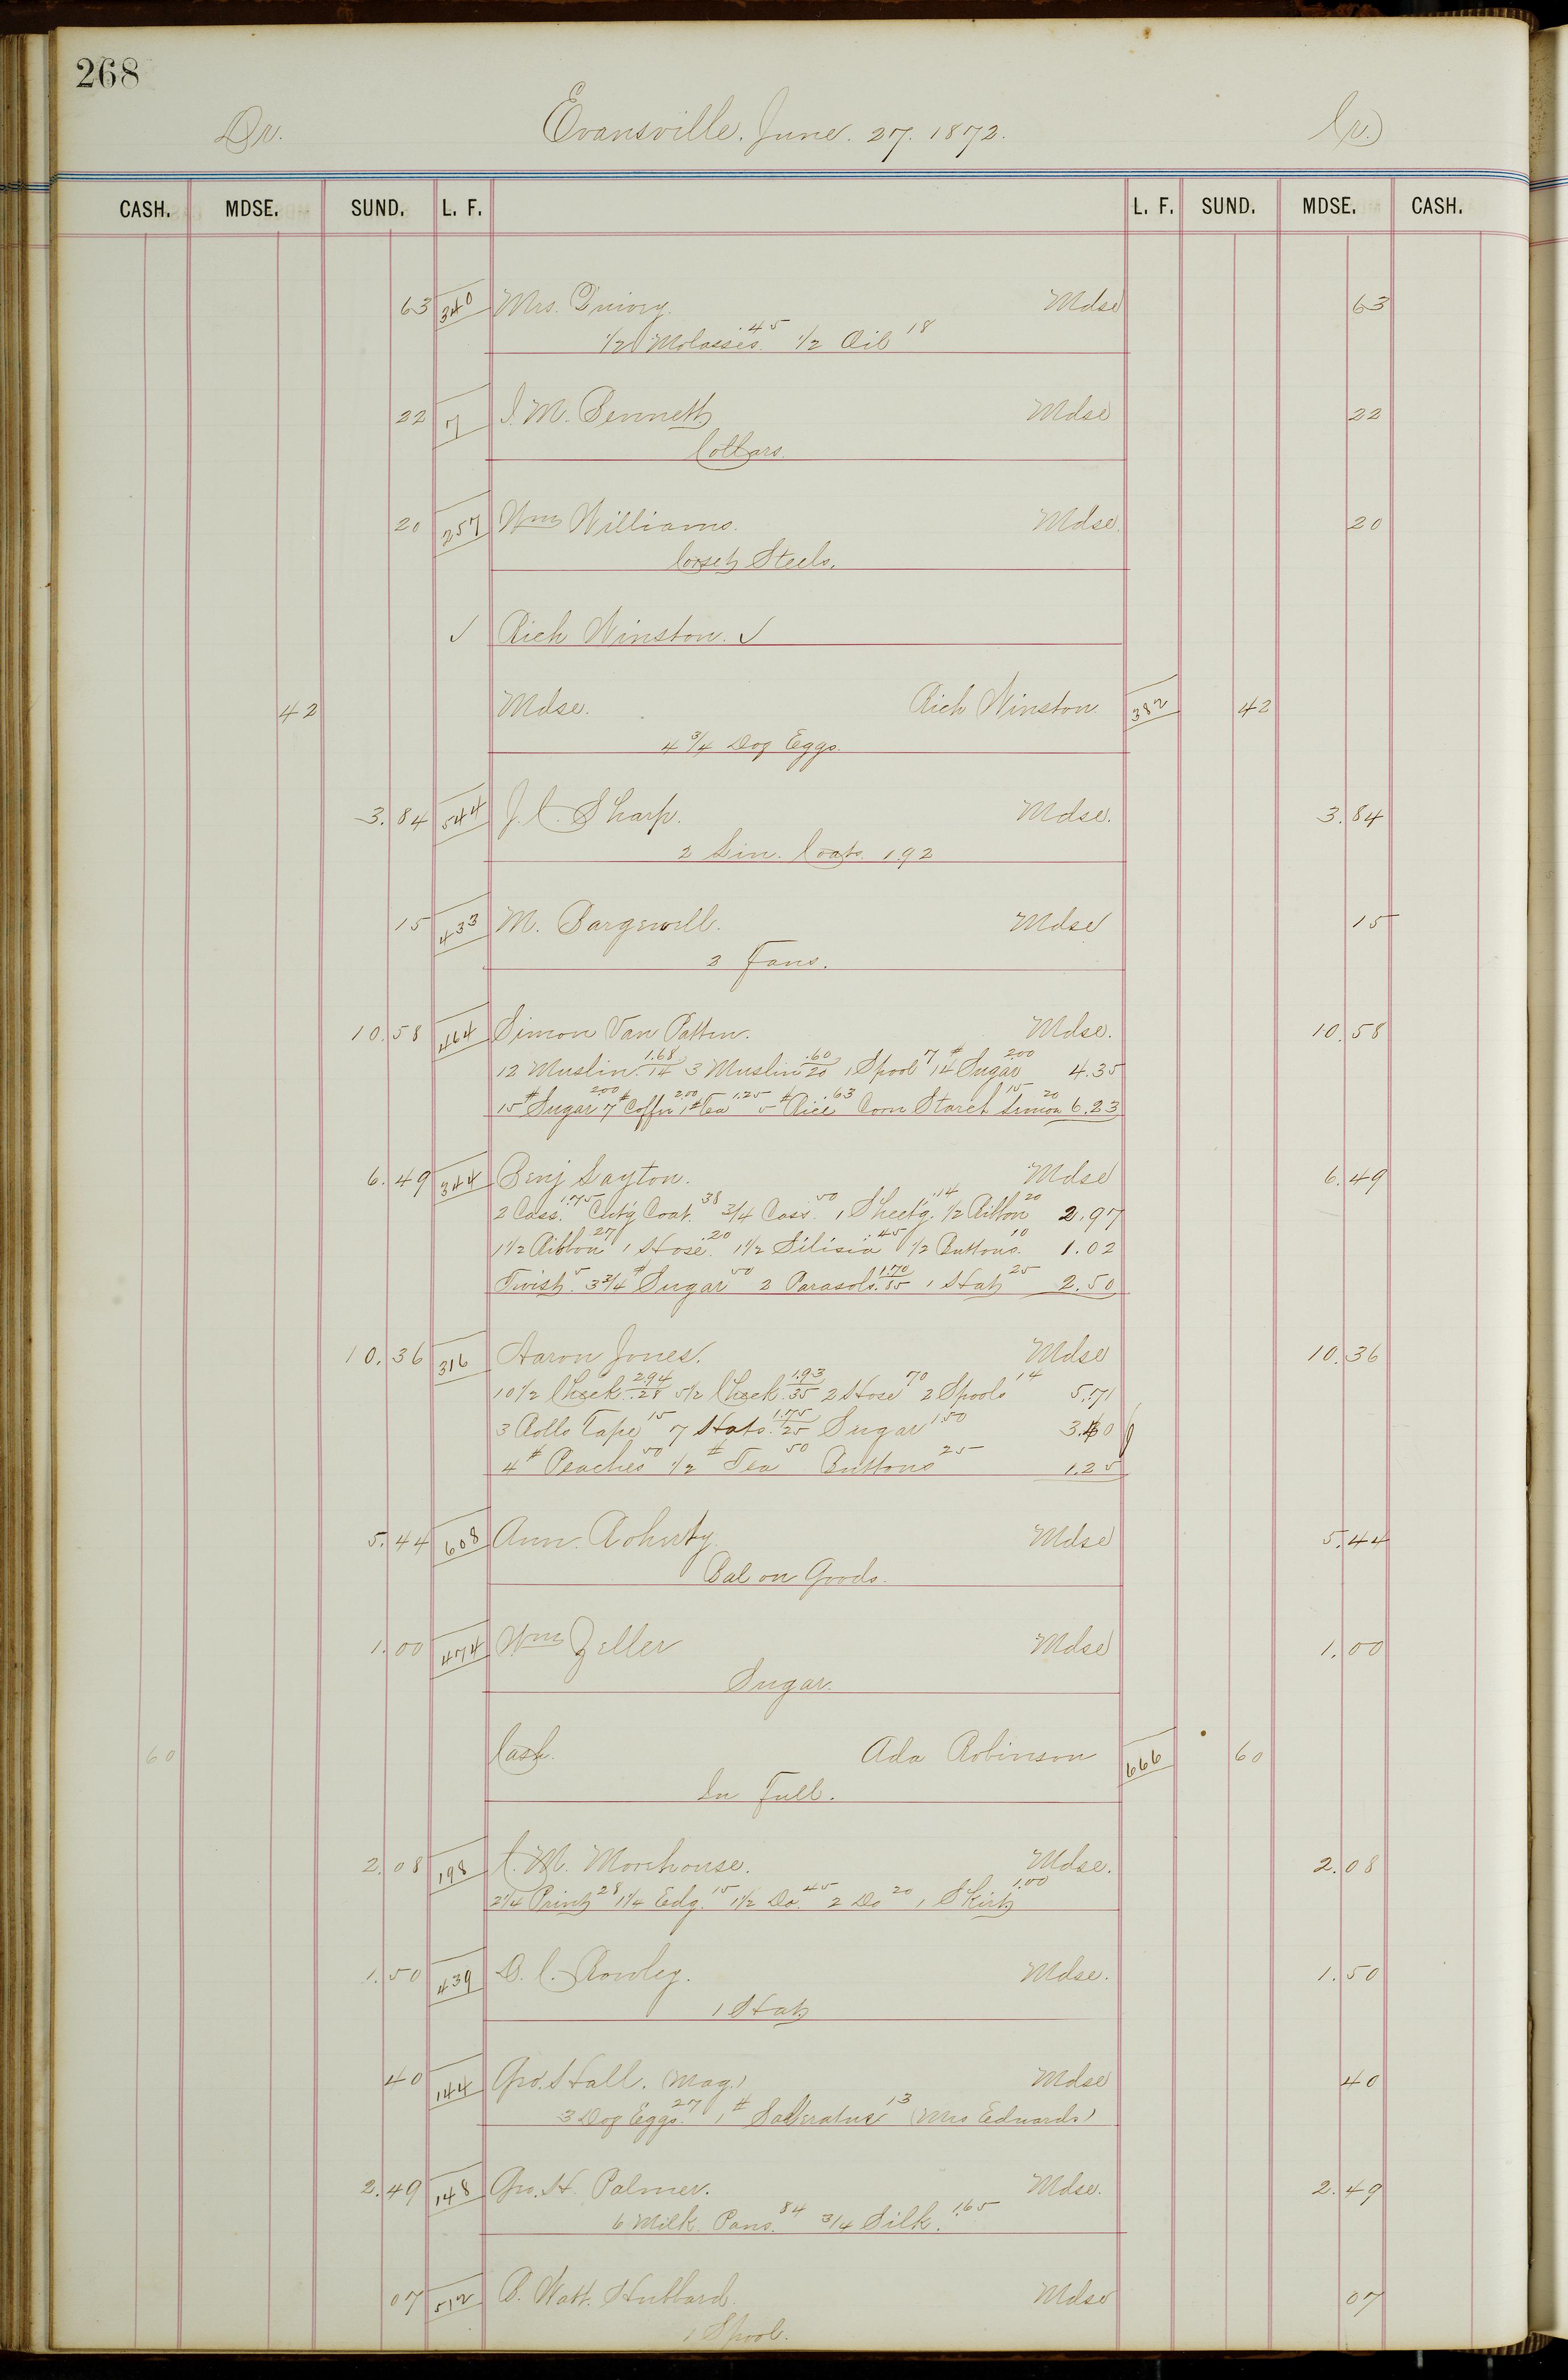 268
Dr. Evansville. June. 27. 1872. Cr.
CASH. MDSE. SUND. L. F. L. F. SUND. MDSE. CASH.
63 340 Mrs. Mdse 63
1/2 Molasses. 45 1/2 Oil 18
22 7 I. M. Bennett Mdse 22
Collars.
20 257 Wm Williams. Mdse. 20
Corset Steels.
✓ Rich Winston. ✓
42 Mdse. Rich Winston. 382 42
4 3/4 Doz Eggs.
3.84 544 J. C. Sharp. Mdse. 3.84
2 Lin. Coats. 1.92
15 433 M. Bargewell. Mdse 15
3 Fans.
10.58 464 Simon Van Patten. Mdse. 10.58
12 Muslin 1.68/14 3 Muslin .60/20 1 Spool 7 14 # Sugar 2.00 4.35
15 # Sugar 2.00 7 # Coffee 2.00 1 # Tea 1.25 5 # Rice .63 Corn Starch 15 Lemon 20 6.23
6.49 344 Benj Layton. Mdse 6.49
2 Cass. 1.75 Cut'g Coat. 38 3/4 Cass. 50 1 Sheet'g. .14 1/2 Ribbon 20 2.97
1 1/2 Ribbon 27 1 Hose. .20 1 1/2 Silisia .45 1/2 Buttons. 10 1.02
Twist. 5 3 3/4 # Sugar 50 2 Parasols. 1.70/.85 1 Hat 25 2.50
10.36 316 Aaron Jones. Mdse 10.36
10 1/2 Check 2.94/.28 5 1/2 Check 1.93/35 2 Hose 70 2 Spools 14 5.71
3 Rolls Tape 15 7 Hats. 1.75/25 Sugar 1.50 3.40
4 # Peaches 50 1/2 # Tea 50 Buttons 25 1.25
5.44 608 Ann. Roherty Mdse 5.44
Bal on Goods.
1.00 474 Wm Zeller Mdse 1.00
Sugar.
60 Cash. Ada Robinson 666 60
In Full.
2.08 198 C. M. Morehouse. Mdse. 2.08
2 1/4 Print 28 1 1/4 Edg. 15 1 1/2 Do. 45 2 Do 20 1 Skirt 1.00
1.50 439 D. C. Rowley. Mdse. 1.50
1 Hat
40 144 Geo. Hall. (Mag.) Mdse 40
3 Doz Eggs. 27 1 # Salleratus 13 (Mrs Edwards)
2.49 148 Geo. H. Palmer. Mdse. 2.49
6 Milk Pans. 84 3/4 Silk. 1.65
07 512 B. Watt. Hubbard. Mdse 07
1 Spool.